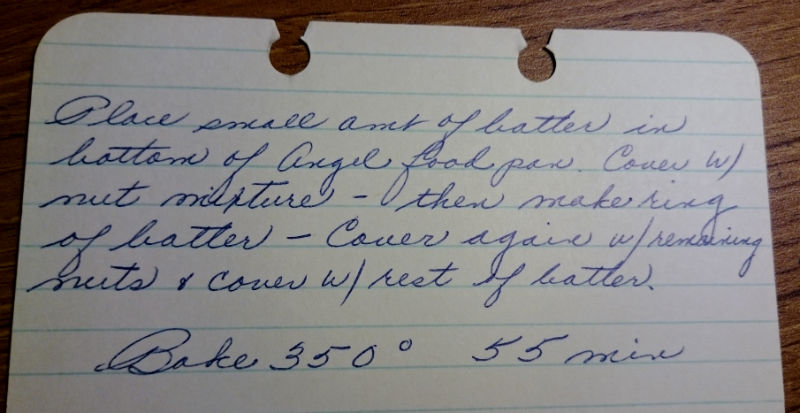 Place small amt of batter in
bottom of Angel food pan. Cover w/
nut mixture - then make ring
of batter - Cover again w/ remaining
nuts & cover w/ rest of batter.
Bake 350° 55 min